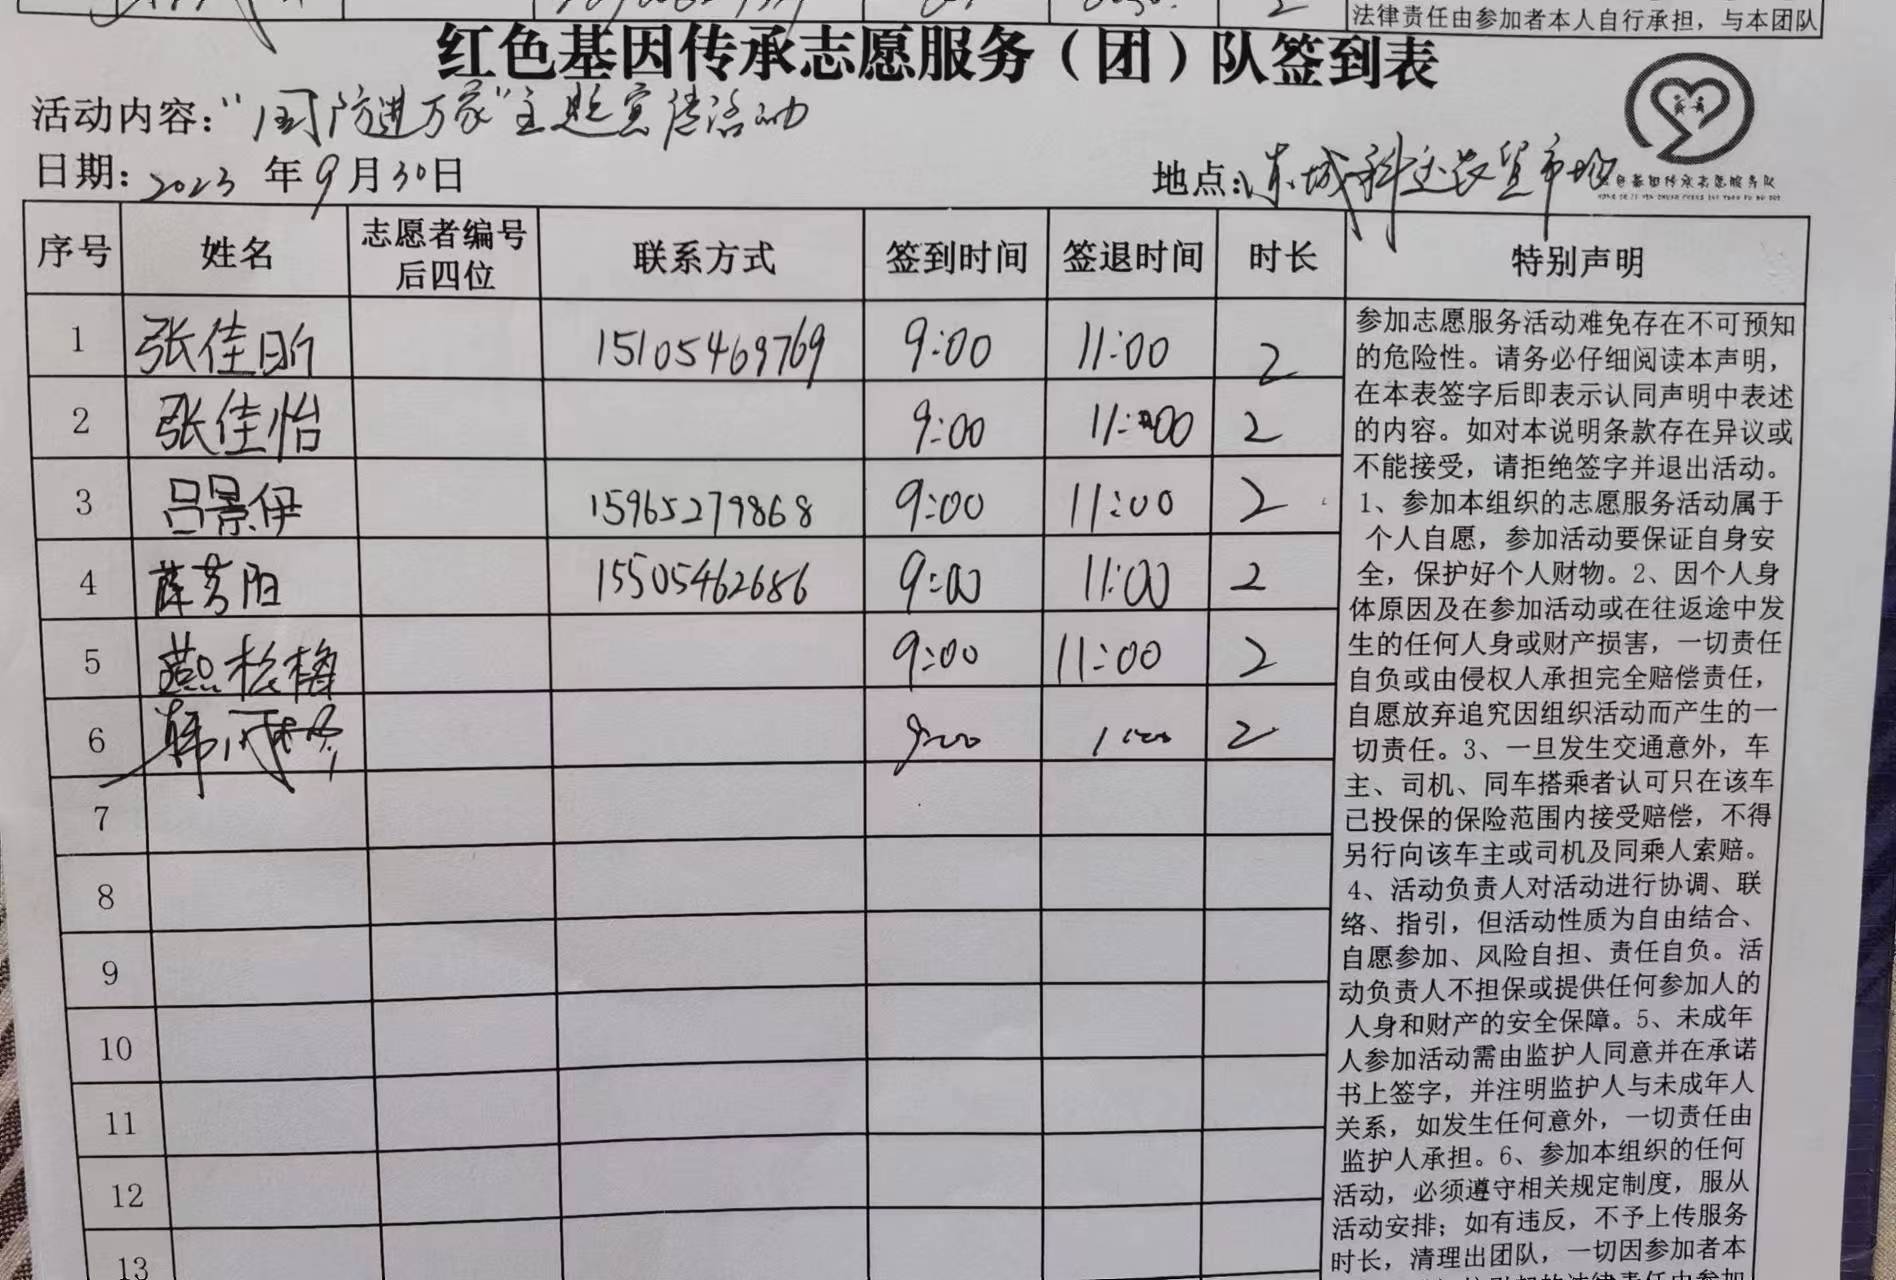 法律责任由参加者本人自行承担，与本团队
红色基因传承志愿服务（团）队签到表
活动内容："国防进万家"主题宣传活动
日期：2023 年 9 月 30 日
地点：东城科达农贸市场
红色基因传承志愿服务队
序号 姓名 志愿者编号后四位 联系方式 签到时间 签退时间 时长 特别声明
1 张佳昕 15105469769 9:00 11:00 2
2 张佳怡 9:00 11:00 2
3 吕景伊 15965279868 9:00 11:00 2
4 薛芳阳 15505462686 9:00 11:00 2
5 燕松梅 9:00 11:00 2
6 韩 9:00 11:00 2
7
8
9
10
11
12
13
参加志愿服务活动难免存在不可预知
的危险性。请务必仔细阅读本声明，
在本表签字后即表示认同声明中表述
的内容。如对本说明条款存在异议或
不能接受，请拒绝签字并退出活动。
1、参加本组织的志愿服务活动属于
个人自愿，参加活动要保证自身安
全，保护好个人财物。2、因个人身
体原因及在参加活动或在往返途中发
生的任何人身或财产损害，一切责任
自负或由侵权人承担完全赔偿责任，
自愿放弃追究因组织活动而产生的一
切责任。3、一旦发生交通意外，车
主、司机、同车搭乘者认可只在该车
已投保的保险范围内接受赔偿，不得
另行向该车主或司机及同乘人索赔。
4、活动负责人对活动进行协调、联
络、指引，但活动性质为自由结合、
自愿参加、风险自担、责任自负。活
动负责人不担保或提供任何参加人的
人身和财产的安全保障。5、未成年
人参加活动需由监护人同意并在承诺
书上签字，并注明监护人与未成年人
关系，如发生任何意外，一切责任由
监护人承担。6、参加本组织的任何
活动，必须遵守相关规定制度，服从
活动安排；如有违反，不予上传服务
时长，清理出团队，一切因参加者本